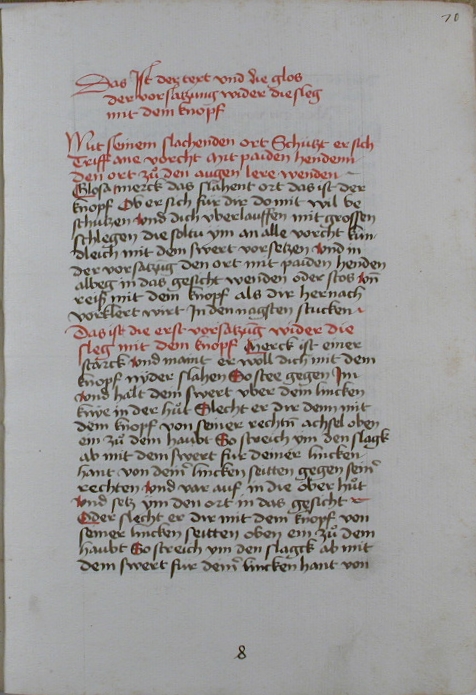 70
Das Ist der text vnd die glos
der vorsatzung wider die sleg
mit dem knopf
Mit seinem slachenden ort Schutzt er sich
Triff ane vorcht Mit paiden hendenn
den ort zů den augen lere wenden
Glosa merck das slahent ort das ist der
knopf Ob er sich für dir do mit wil be
schutzen Vnd dich vberlauffen mit grossen
schlegen die soltu Im an alle vorcht kün
dleich mit dem swert vorsetzen Vnd in
der vorsatzug den ort mit paiden henden
albeg in das gesicht wenden oder stos vn̄
reiß mit dem knopf als dir hernach
vorklert wirt In den nagsten stucken
Das ist die erst vorsatzug wider die
sleg mit dem knopf Merck ist einer
starck Vnd maint er woll dich mit dem
knopf nyder slahen So stee gegen Im
Vnd halt dein swert vber dem lincken
knye in der hůt Slecht er dir denn mit
dem knopf von seiner rechtn̄ achsel oben
ein zů dem haubt So streich Im den slagk
ab mit dem swert für deiner lincken
hant von deinˀ lincken seitten gegen seinˀ
rechten Vnd var auf in die ober hůt
Vnd setz Im den ort in das gesicht
Oder slecht er dir mit dem knopf von
seiner lincken seitten oben ein zů dem
haubt So streich Im den slagck ab mit
dem swert für deinˀ lincken hant von
8